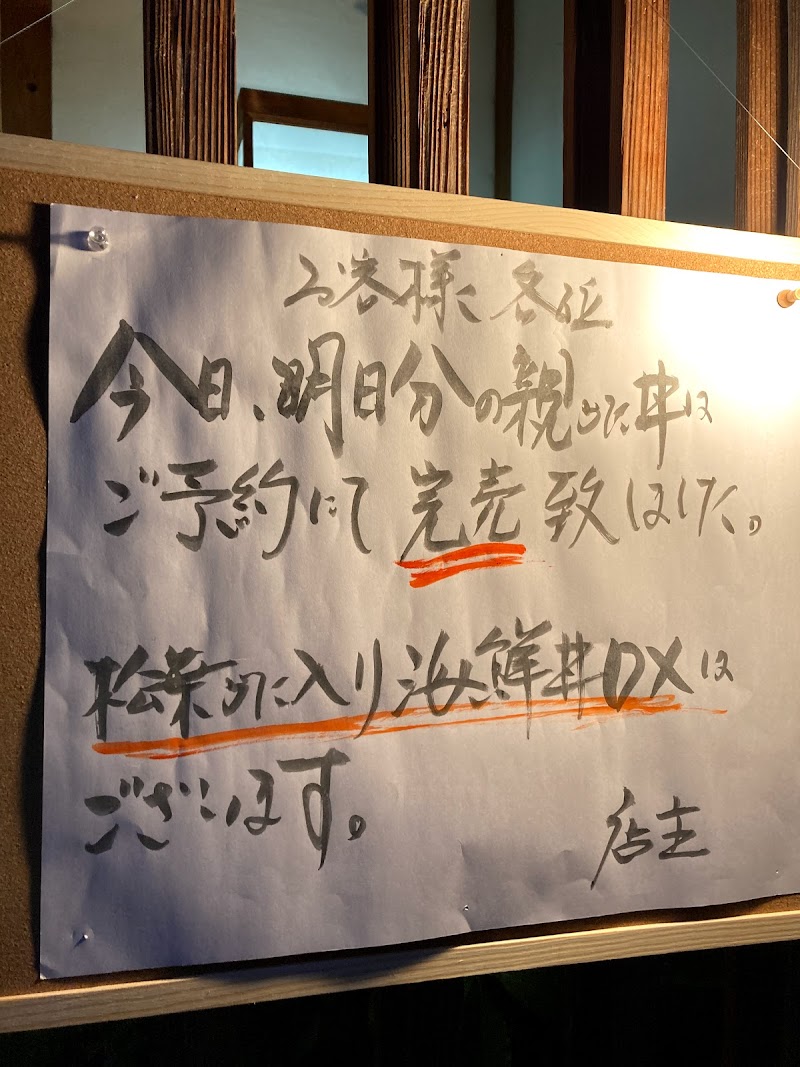 お客様各位
今日、明日分の親がに丼は
ご予約にて完売致しました。
松葉がに入り海鮮丼DXは
ございます。
店主